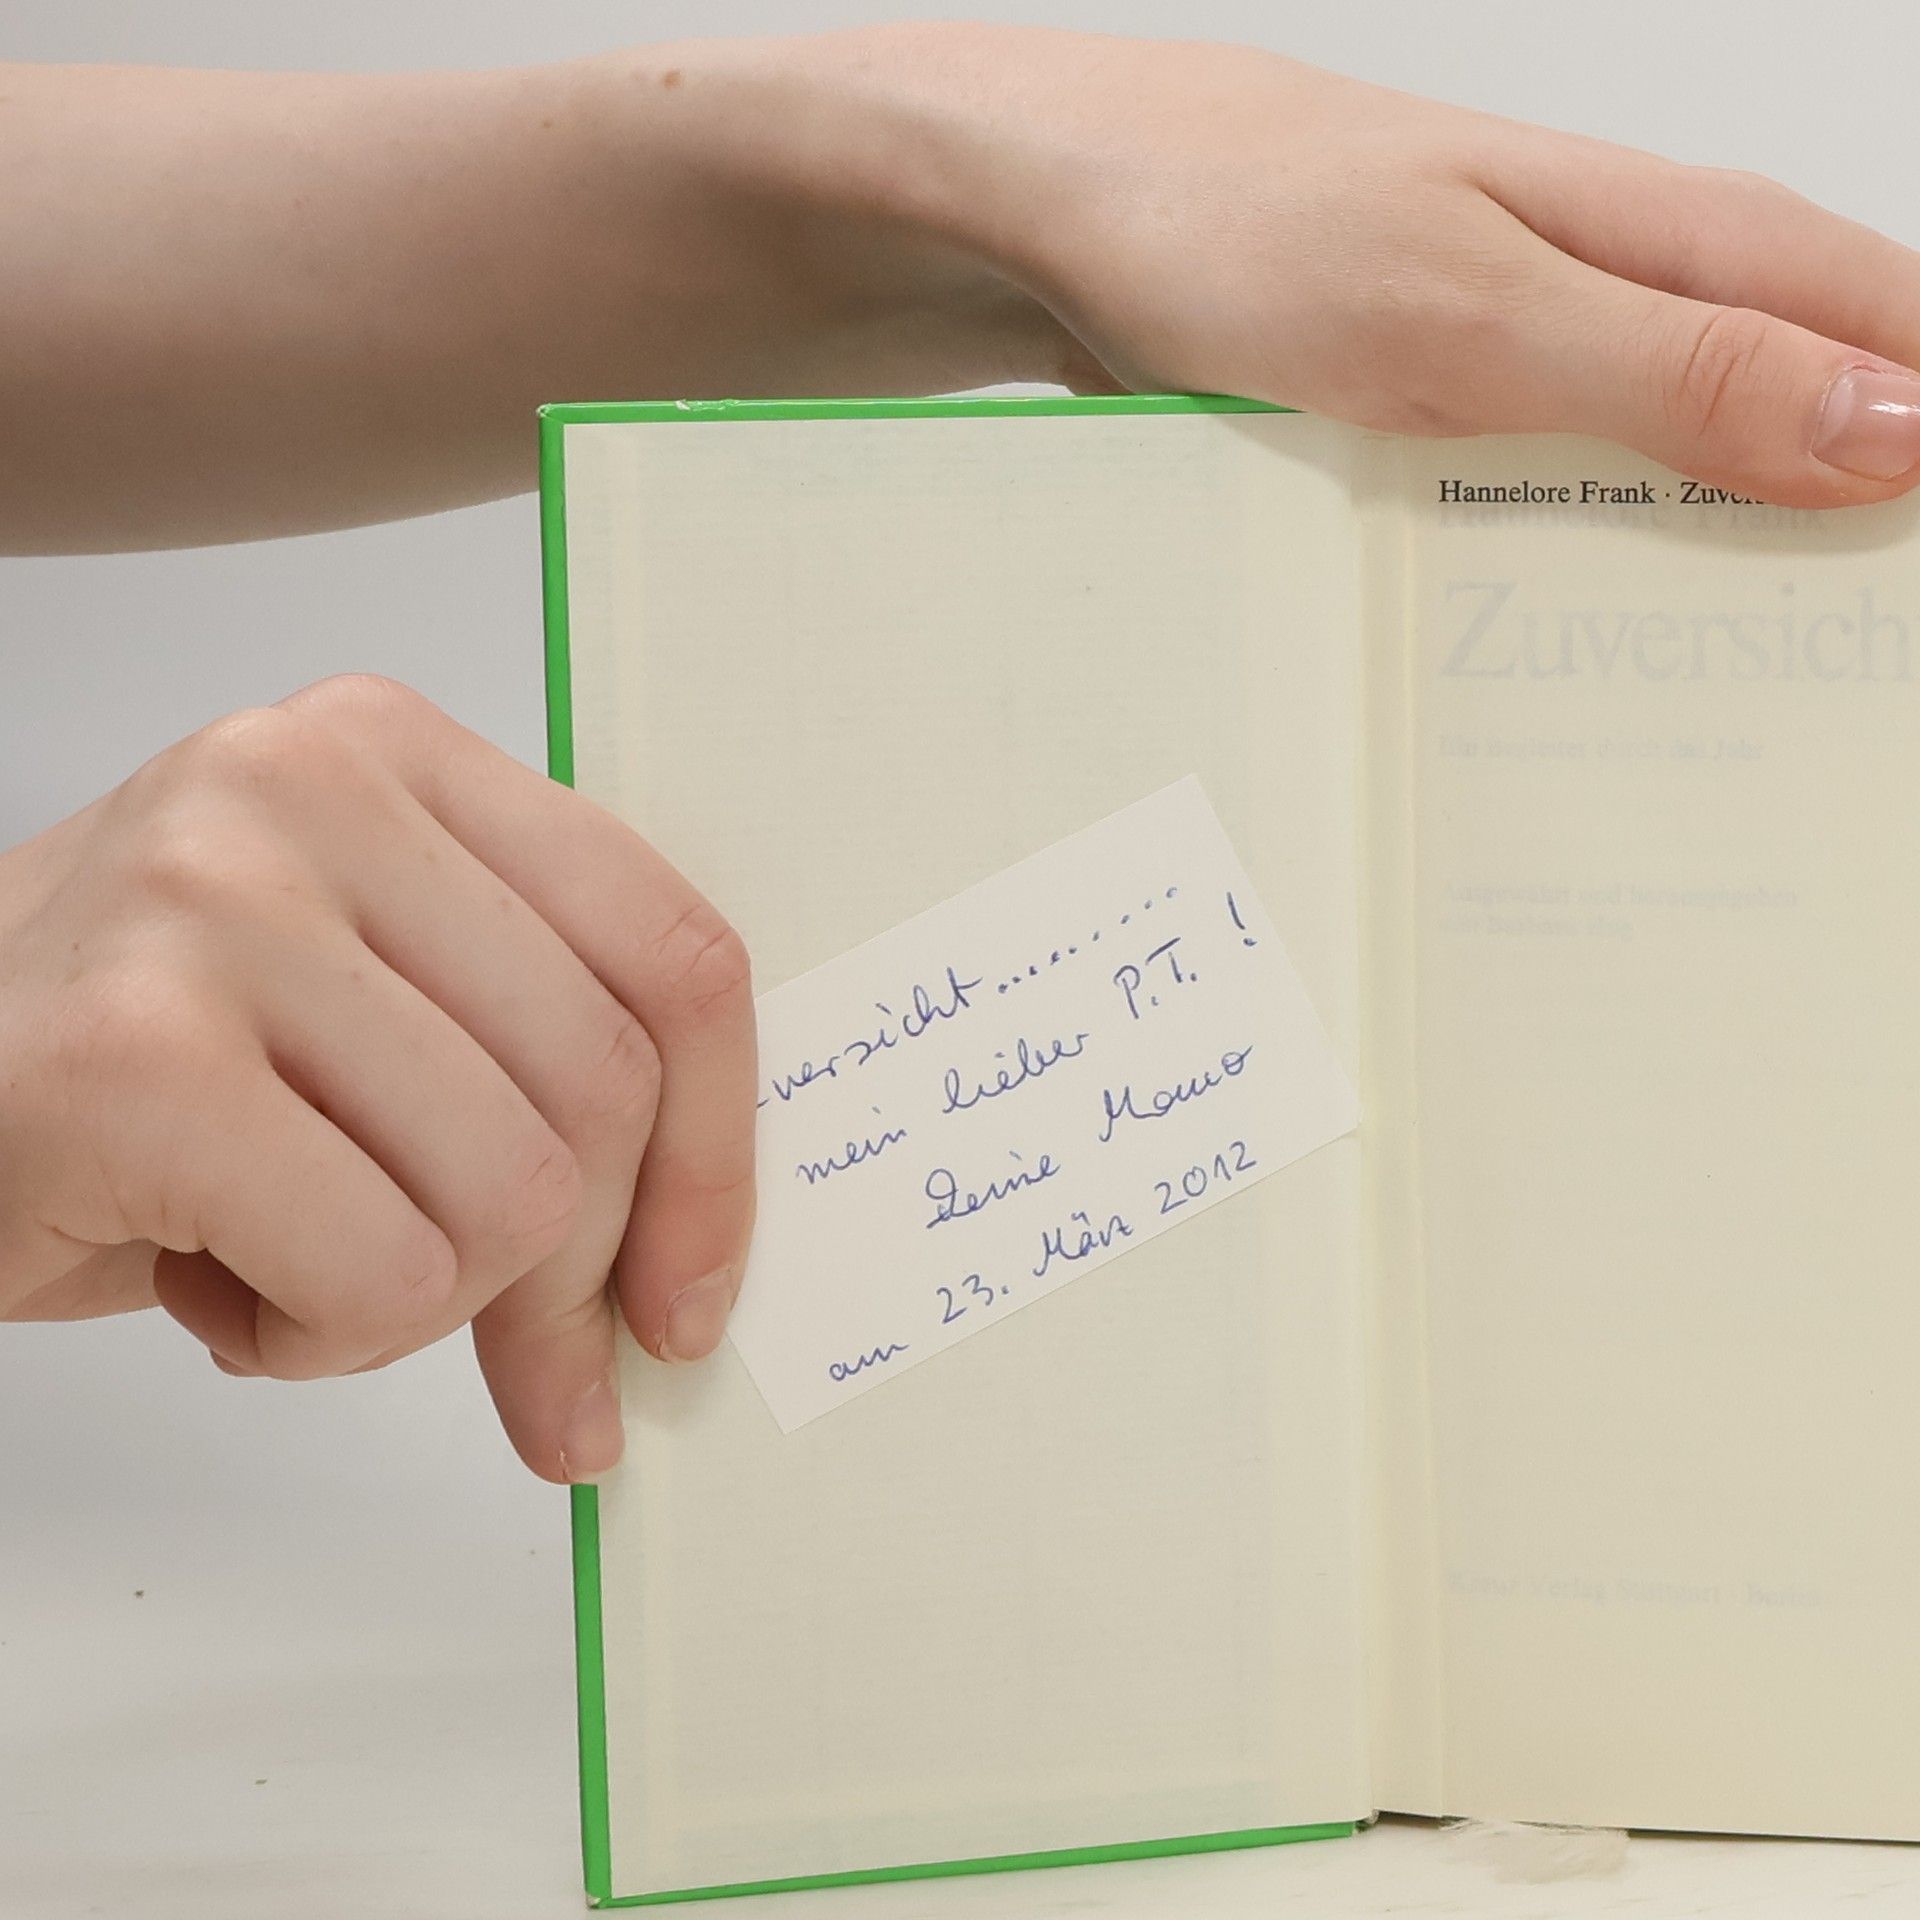 Hannelore Frank · Zuvers
Hannelore Frank
Zuversich
Ein Begleiter durch das Jahr
Ausgewählt und herausgegeben
von Barbara
Kreuz Verlag Stuttgart · Berlin
versicht..............
mein lieber P.T. !
Deine Momo
am 23. März 2012